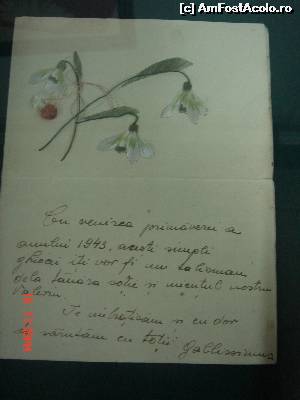 (c) AmFostAcolo.ro
Cu venirea primăverii a
anului 1943, acești simpli
ghiocei îți vor fi un talisman
dela tânăra soție și micul nostru
Valeriu.
Te îmbrățișăm și cu dor
te sărutăm cu toții